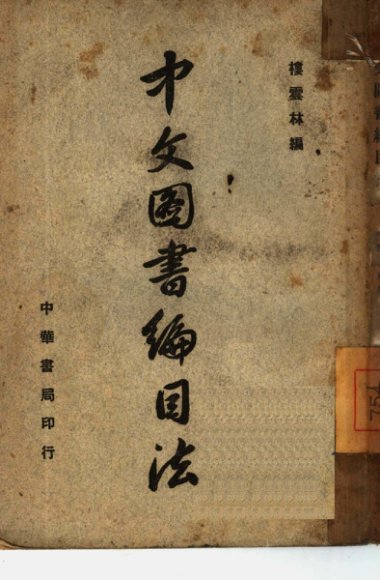 樓雲林編
中文圖書編目法
中華書局印行
754